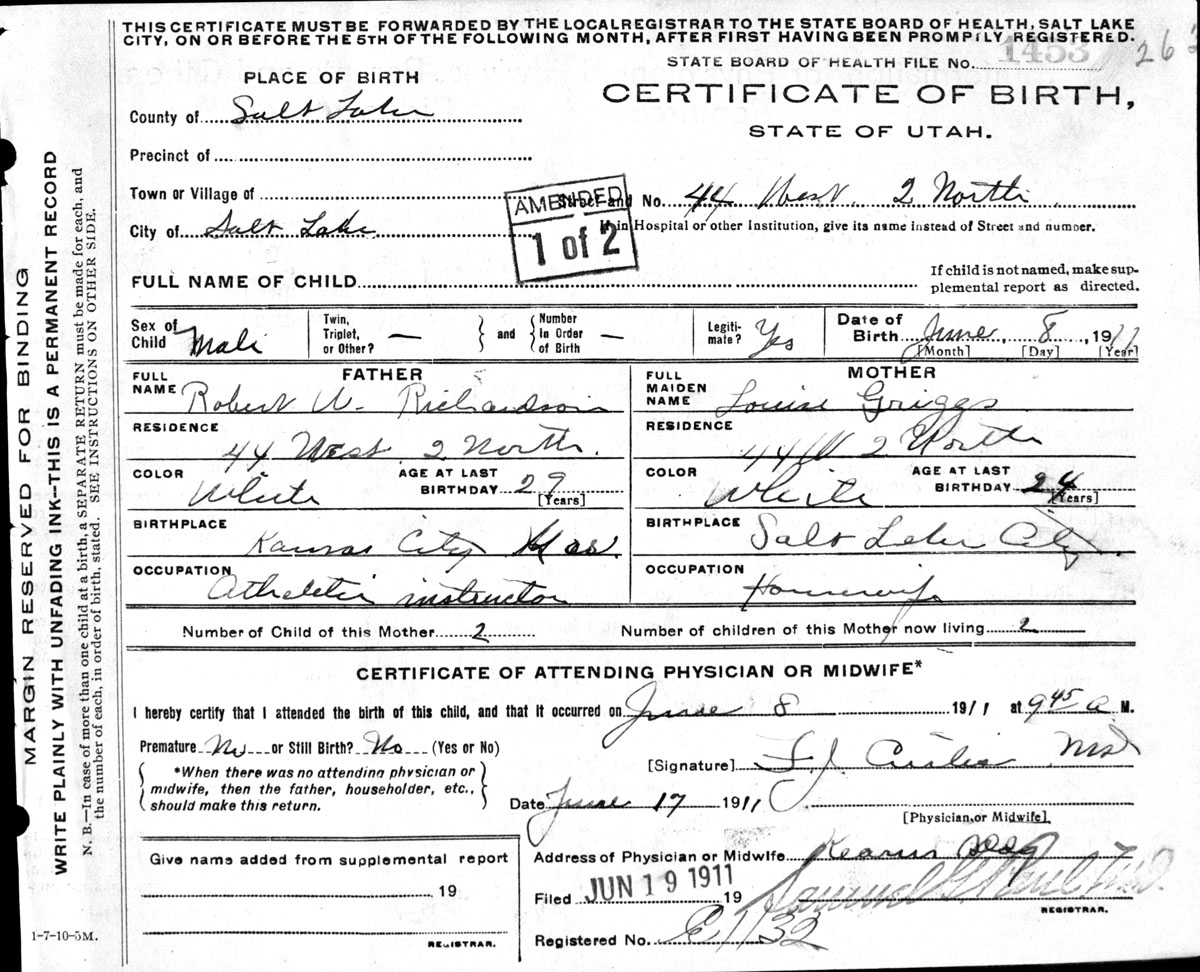 THIS CERTIFICATE MUST BE FORWARDED BY THE LOCAL REGISTRAR TO THE STATE BOARD OF HEALTH, SALT LAKE
CITY, ON OR BEFORE THE 5TH OF THE FOLLOWING MONTH, AFTER FIRST HAVING BEEN PROMPTLY REGISTERED.
STATE BOARD OF HEALTH FILE No. 1453
263
PLACE OF BIRTH
CERTIFICATE OF BIRTH,
STATE OF UTAH.
County of Salt Lake
Precinct of
Town or Village of
AMENDED
1 of 2
Street and No. 44 West 2 North
City of Salt Lake
If in Hospital or other Institution, give its name instead of Street and number.
FULL NAME OF CHILD
If child is not named, make sup-
plemental report as directed.
Sex of Child Male
Twin, Triplet, or Other? —
and
Number in Order of Birth —
Legiti-mate? Yes
Date of Birth June 8, 1911
[Month] [Day] [Year]
FATHER
MOTHER
FULL NAME Robert W. Richardson
FULL MAIDEN NAME Louise Griggs
RESIDENCE 44 West 2 North.
RESIDENCE 44 W 2 North
COLOR White
AGE AT LAST BIRTHDAY 29 [Years]
COLOR White
AGE AT LAST BIRTHDAY 24 [Years]
BIRTHPLACE Kansas City
BIRTHPLACE Salt Lake City
OCCUPATION Athletic instructor
OCCUPATION Housewife
Number of Child of this Mother 2
Number of children of this Mother now living 2
CERTIFICATE OF ATTENDING PHYSICIAN OR MIDWIFE*
I hereby certify that I attended the birth of this child, and that it occurred on June 8 1911 at 9 45 a M.
Premature No or Still Birth? No (Yes or No)
*When there was no attending physician or
midwife, then the father, householder, etc.,
should make this return.
[Signature]
Date June 17 1911
[Physician or Midwife]
Give name added from supplemental report
19
REGISTRAR.
Address of Physician or Midwife Kearns Bldg
Filed JUN 19 1911 19
REGISTRAR.
Registered No. E1132
1-7-10-5M.
MARGIN RESERVED FOR BINDING
WRITE PLAINLY WITH UNFADING INK--THIS IS A PERMANENT RECORD
N. B.—In case of more than one child at a birth, a SEPARATE RETURN must be made for each, and
the number of each, in order of birth, stated. SEE INSTRUCTIONS ON OTHER SIDE.